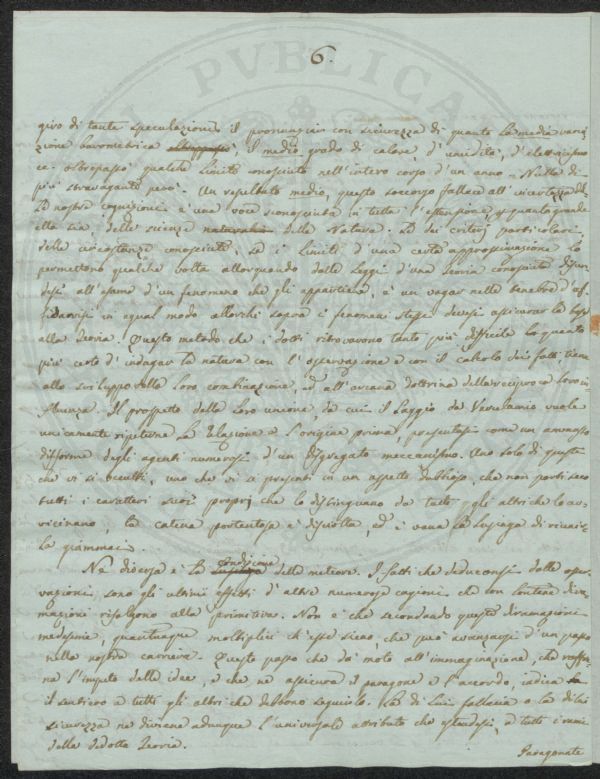 6.
giro di tante speculazioni il pronunziar con sicurezza di quanto la media varia
zione barometrica il medio grado di calore, d'umidità, d'elettricismo
ec. oltrepassò qualche limite conosciuto nell'intero corso d'un anno. Nulla di
più stravagante però. Un resultato medio, questo soccorso fallace all'incertezza del
le nostre cognizioni è una voce sconosciuta in tutta l'estensione, quantunque grande
ella sia, delle scienze della Natura. Se dei criterj particolari
delle circostanze conosciute, se i limiti d'una certa approssimazione lo
permettono qualche volta allorquando dalle Leggi d'una Teoria conosciuta
desi all'esame d'un fenomeno che gli appartiene, è un vagar nelle tenebre
in egual modo allorchè sopra i fenomeni stessi devesi assicurar la base
alla Teoria. Questo metodo che i dotti ritrovarono tanto più difficile quanto
più certo d'indagar la natura con l'osservazione e con il calcolo dei fatti tiene
allo sviluppo della loro combinazione, ed all'arcana dottrina della reciproca loro in
fluenza. Il prospetto della loro unione, da cui il Saggio da Verulamio vuole
unicamente ripeterne la Relazione e l'origine prima, presentasi come un ammasso
difforme dagli agenti numerosi d'un disgregato meccanismo. Uno solo di questi
che vi si occulti, uno che vi si presenti in un aspetto dubbioso, che non porti seco
tutti i caratteri suoi proprj che lo distinguano da tutti gli altri che lo av
vicinano, la catena portentosa è disciolta, ed è vana la lusinga di riunir
la giammai.
Nè diversa è la condizione delle meteore. I fatti che deduconsi dalle osser
vazioni, sono gli ultimi effetti d'altre numerose cagioni, che con lontane dira
mazioni risalgono alla primitiva. Non è che secondando queste diramazioni
medesime, quantunque moltiplici ch'esse sieno, che può avanzarsi d'un passo
nella nostra carriera. Questo passo che dà moto all'immaginazione, che raffre
na l'impeto delle idee, e che ne assicura il paragone e l'accordo, indica
il sentiero a tutti gli altri che debbono seguirlo. La di lui fallacia o la di lui
sicurezza ne diviene adunque l'universale attributo che estendesi a tutti i rami
della dedotta Teoria.
Paragonate